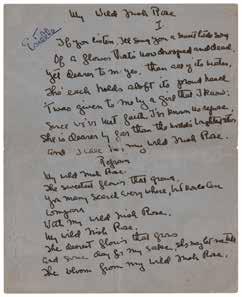 My Wild Irish Rose
I
If you listen I'll sing you a sweet little song
Of a flower that's now drooped and dead,
Yet dearer to me, yes, than any of its mates,
Tho' each holds aloft its proud head
'Twas given to me by a girl that I know;
Since we've met, faith, I've known no repose,
She is dearer by far than the world's brightest star,
And I call her my wild Irish Rose.
Refrain
My wild Irish Rose,
The sweetest flower that grows,
You may search everywhere, but none can
compare
With my wild Irish Rose.
My wild Irish Rose,
The dearest flower that grows
And some day for my sake, she may let me take
The bloom from my wild Irish Rose.